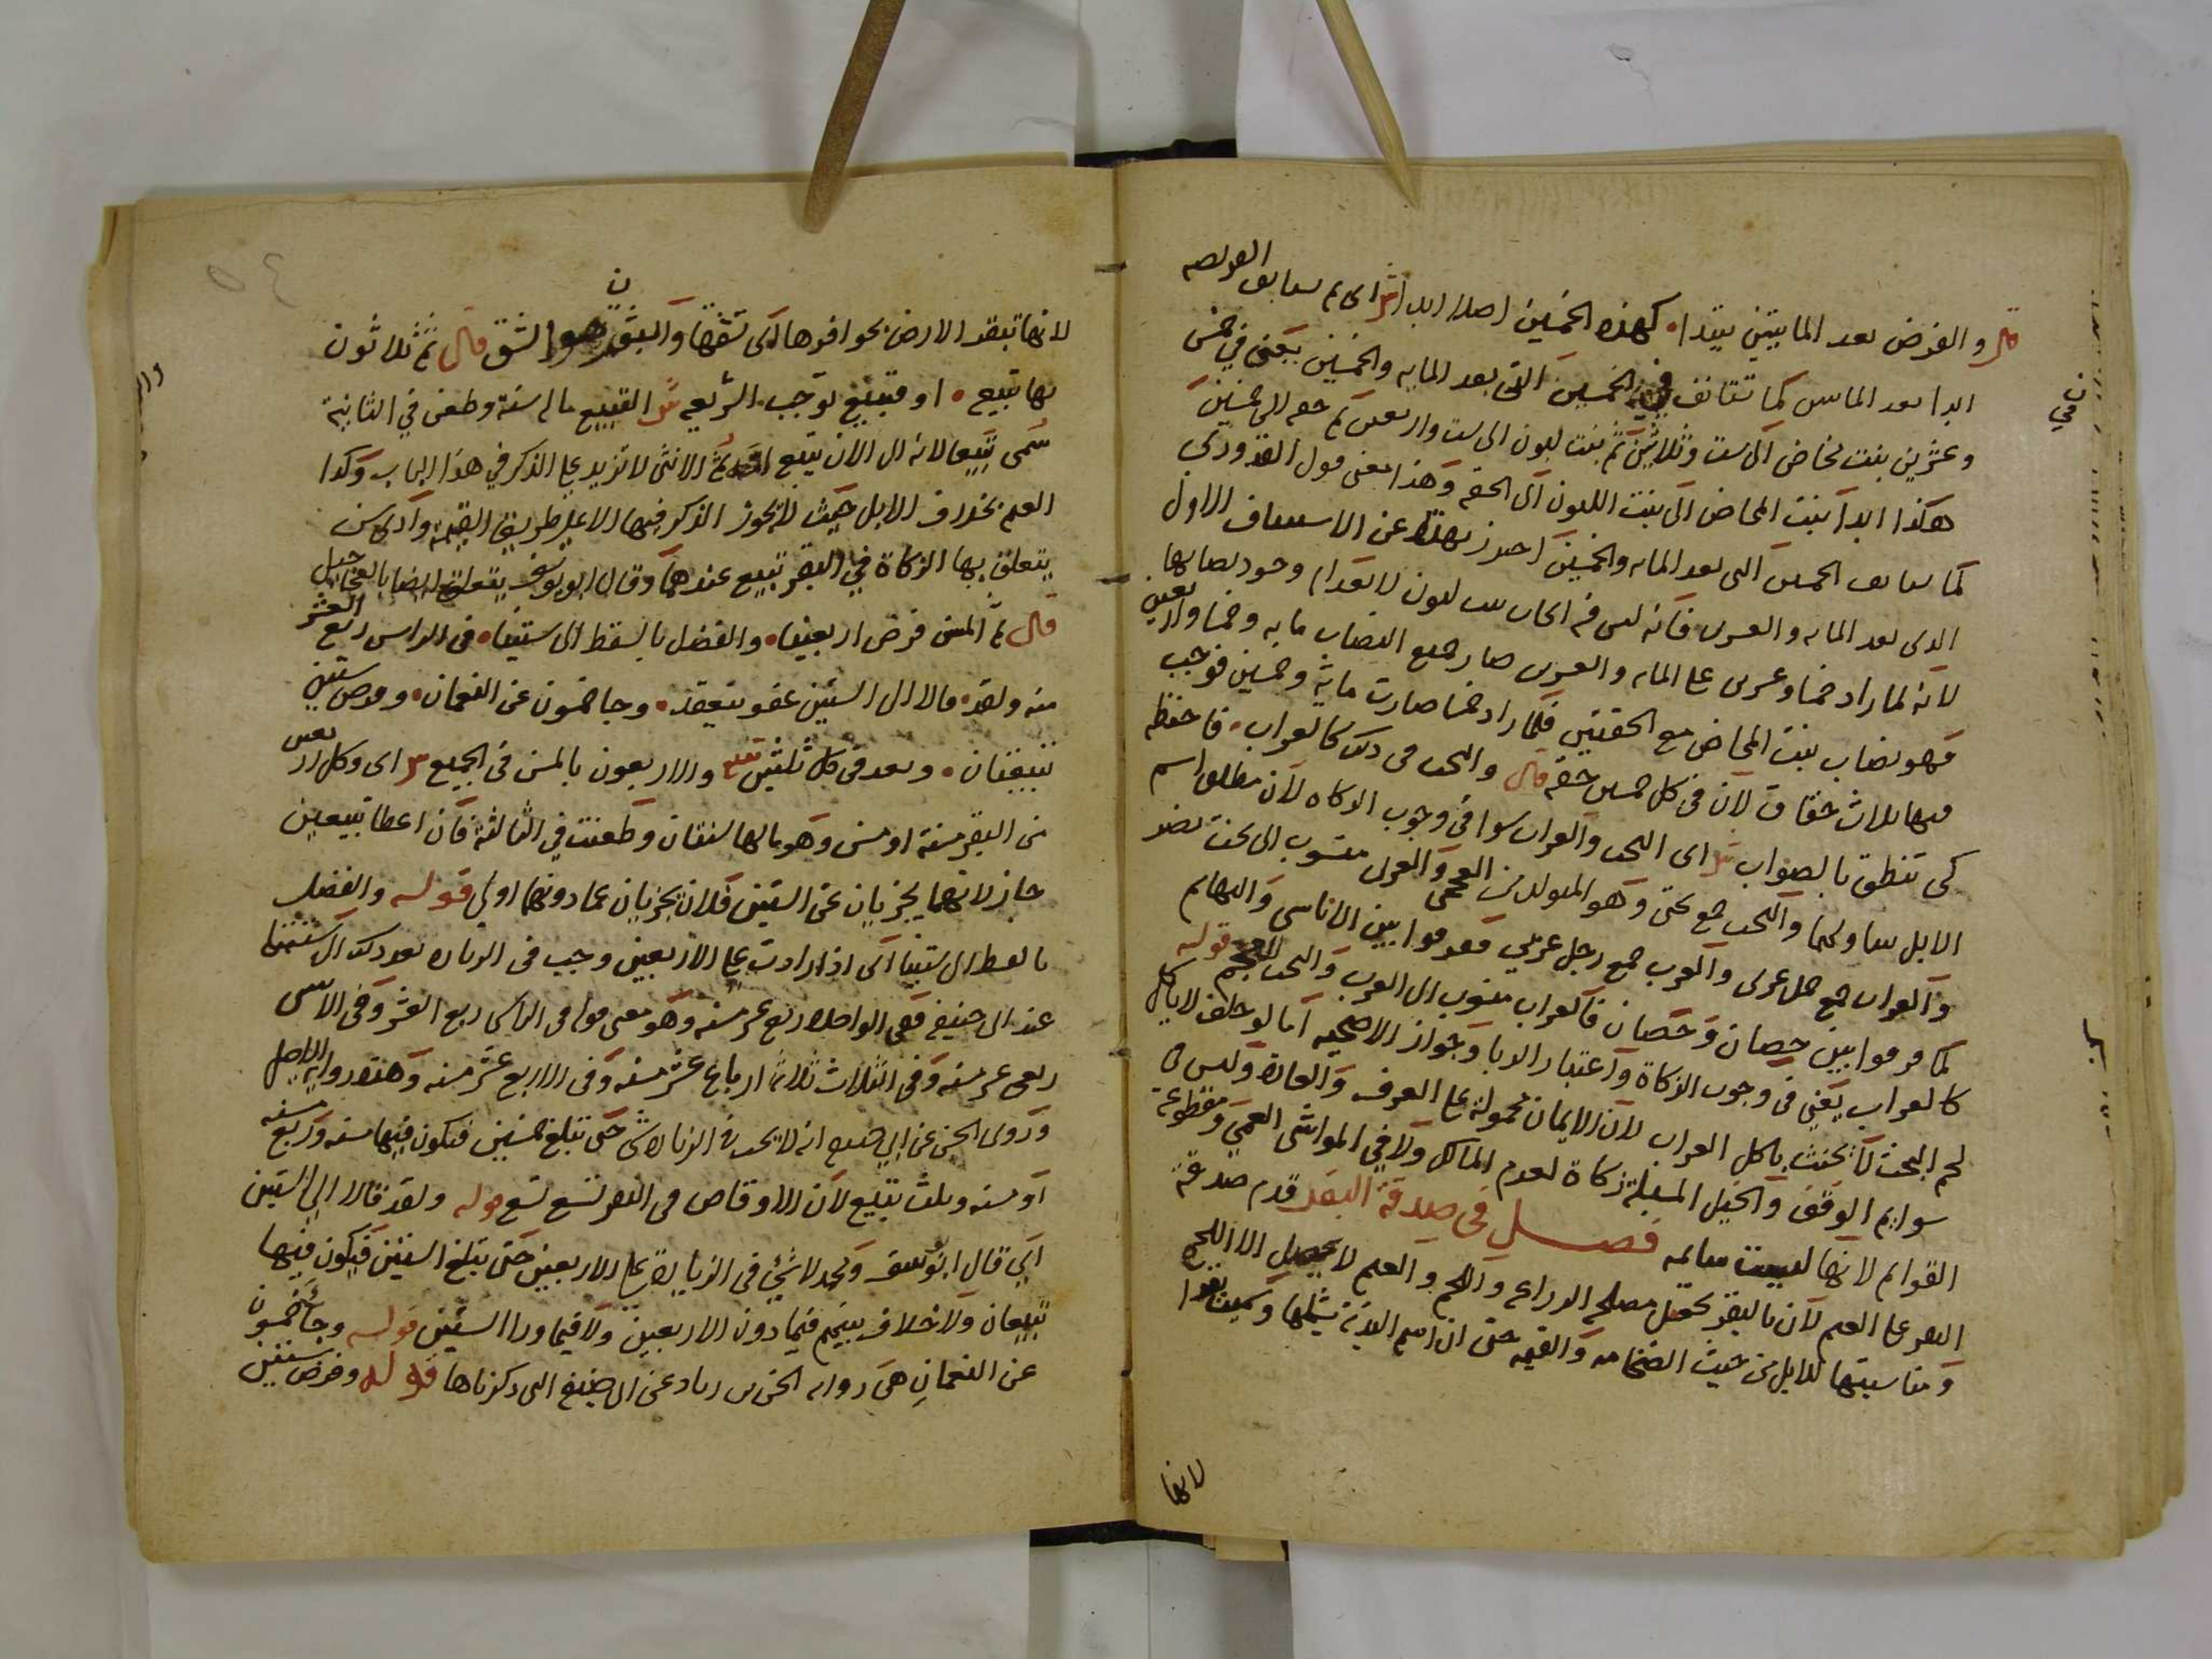 قال والفرض بعد المايتين يبتدا كهذه الخمسين اصلا ابدا ش اي ثم يستانف الفريضه
ابدا بعد المايتين كما تستانف في الخمسين التي بعد المايه والخمسين يعني في خمس
وعشرين بنت مخاض الى ست وثلاثين ثم بنت لبون الى ست واربعين ثم حقه الى خمسين
هكذا ابدا بنت المخاض الى بنت اللبون الى الحقه وهذا معنى قول القدوري
كما يستانف الخمسين التي بعد المايه والخمسين احترز بهذا عن الاستيناف الاول
الذي بعد المايه والعشرين فانه ليس فيه ايجاب بنت لبون لانعدام وجود نصابها
لانه لما زاد خمسا وعشرين على المايه والعشرين صار جميع النصاب مايه وخمسا واربعين
فهو نصاب بنت المخاض مع الحقتين فلما زاد خمسا صارت ماية وخمسين فوجب
فيها ثلاث حقاق لان في كل خمسين حقه قال والبخت في ذلك كالعراب فاحفظه
كي تنطق بالصواب ش اي البخت والعراب سوا في وجوب الزكاه لان مطلق اسم
الابل يتناولهما والبخت جمع بختي وهو المتولد من العجمي والعربي منسوب الى بخت نصر
والعراب جمع جمل عربي والعرب جمع رجل عربي ففرقوا بين الاناسي والبهايم
كما فرقوا بين حصان وحصان فالعراب منسوب الى العرب والبخت العجم قوله
كالعراب يعني في وجوب الزكاة واعتبار الربا وجواز الاضحيه اما لو حلف لا ياكل
لحم البخت لا يحنث باكل العراب لان الايمان محمولة على العرف والعادة وليس في
سوايم الوقف والخيل المسبلة زكاة لعدم المالك ولا في المواشي العمي ومقطوعة
القوايم لانها ليست سائمه فصل في صدقة البقر قدم صدقة
البقر على الغنم لان بالبقر تحصل مصلحه الزراعه واللحم والغنم لا يحصل الا اللحم
ومناسبتها للابل من حيث الضخامه والقيمه حتى ان اسم البدنة يشملها وسميت بقرا
لانها
لانها تبقر الارض بحوافرها اي تشقها والبقر هو الشق قال ثم ثلاثون
بها تبيع او تبيع توجب الشريعه ش التبيع ماله سنة وطعن في الثانية
سمي تبيعا لانه الى الان يتبع امه ثم الانثى لا تزيد على الذكر في هذا الباب وكذا
الغنم بخلاف الابل حيث لا يجوز الذكر فيها الا على طريق القيمة وادنى سن
يتعلق بها الزكاة في البقر تبيع عندهما وقال ابو يوسف يتعلق ايضا بالعجاجيل
قال ثم المسن فرض اربعينا والفضل بالقسط الى ستينا في الراس ربع العشر
منه ولقد قالا الى الستين عفو ينعقد وجا خمسون عن النعمان وفرض ستين
تبيعتان وبعد في كل ثلثين تبيع والاربعون بالمسن في الجميع ش اي وكل اربعين
من البقر مسنة او مسن وهو ما لها سنتان وطعنت في الثالثة فان اعطا تبيعين
جاز لانهما يجزيان عن الستين فلان يجزيان عما دونها اولى قوله والفضل
بالقسط الى ستينا اي اذا زادت على الاربعين وجب في الزياده بقدر ذلك الى ستينا
عند ابي حنيفه ففي الواحده ربع عشر مسنه وهو معنى قوله في الراس ربع العشر وفي الاثنين
ربعي عشر مسنه وفي الثلاث ثلاثة ارباع عشر مسنه وفي الاربع عشر مسنه وهذه رواية الاصل
وروى الحسن عن ابي حنيفه انه لا يجب في الزياده شي حتى تبلغ خمسين فيكون فيها مسنه وربع مسنه
او مسنه وثلث تبيع لان الاوقاص في البقر تسع تسع قوله ولقد قالا الى الستين
اي قال ابو يوسف ومحمد لا شي في الزيادة على الاربعين حتى تبلغ الستين فيكون فيها
تبيعان ولا خلاف بينهم فيما دون الاربعين ولا فيما ورا الستين قوله وجا خمسون
عن النعمان هي رواية الحسن بن زياد عن ابي حنيفه التي ذكرناها قوله وفرض ستين